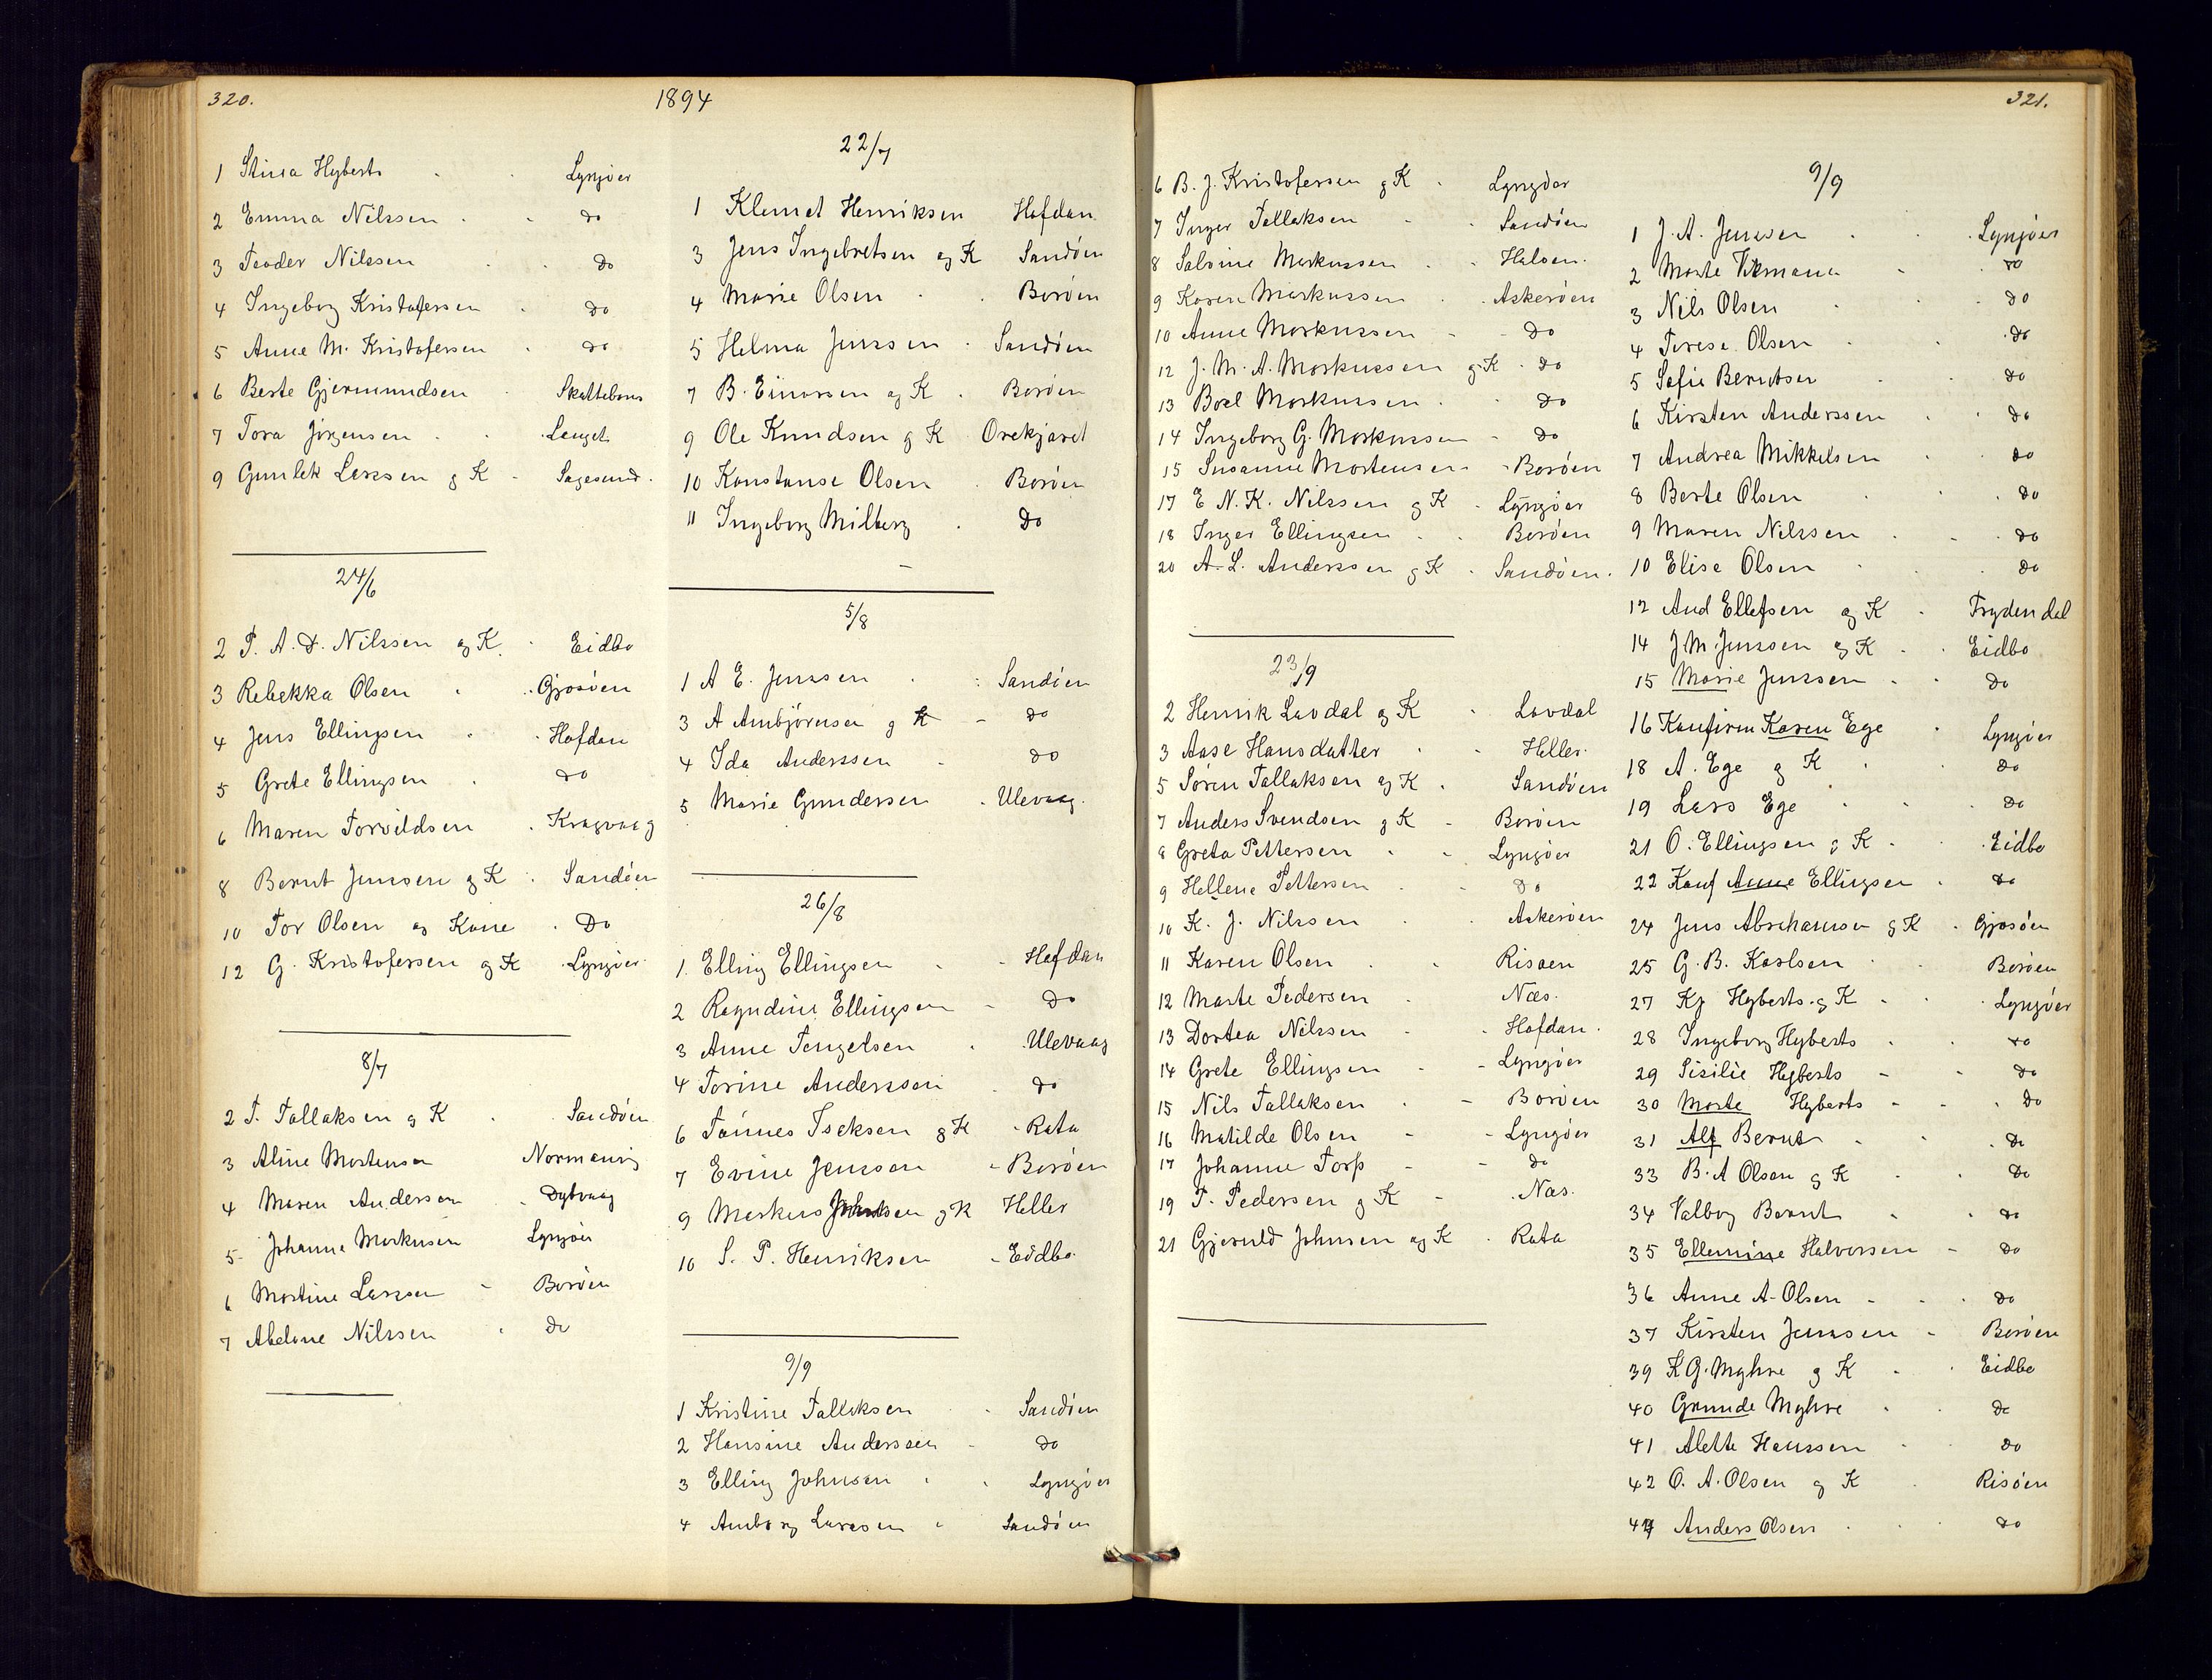 320.
1894
1 Stina Hyberts Lyngöer
2 Emma Nilssen do
3 Teoder Nilssen do
4 Ingeborg Kristofersen do
5 Anne M. Kristofersen do
6 Berte Gjermundsen
7 Tora Jörgensen Lenget
9 Gunlek Larssen og K Sagesund.
24/6
2 T. A. D. Nilssen og K. Eidbo
3 Rebekka Olsen Gjosöen
4 Jens Ellingsen Hofdan
5 Grete Ellingsen do
6 Maren Torvildsen Kragvaag
8 Bernt Jenssen og K Sandöen
10 Tor Olsen og Kone Do
12 G. Kristofersen og K Lyngöer
8/7
2 T. Tallaksen og K Sandöen
3 Aline Mortensen Normanvig
4 Maren Anderssen Dybvaag
5 Johanne Markussen Lyngöer
6 Martine Larssen Boröen
7 Abelone Nilssen do
22/7
1 Klemet Henriksen Hofdan
3 Jens Ingebretsen og K Sandöen
4 Marie Olsen Boröen
5 Helma Jenssen Sandöen
7 B. Einarsen og K Boröen
9 Ole Knudsen og K Orekjæret
10 Konstanse Olsen Boröen
11 Ingeborg Milberg Do
5/8
1 A E. Jenssen Sandöen
3 A Ambjörnsen og K do
4 Ida Anderssen do
5 Marie Gundersen Ulevaag.
26/8
1. Elling Ellingsen Hofdan
2 Ragndine Ellingsen do
3 Anne Tengelsen Ulevaag
4 Torine Anderssen do
6 Tönnes Iseksen og K Rota
7 Evine Jenssen Boröen
9 Markus Johnsen og K Heller
10 S. P. Henriksen Eidbo
9/9
1 Kristine Tallaksen Sandöen
2 Hansine Anderssen do
3 Elling Johnsen Lyngöer
4 Amborg Larssen Sandöen
321.
6 B. J. Kristofersen og K Lyngöer
7 Inger Tallaksen Sandöen
8 Salvine Markussen Holoen.
9 Karen Markussen Askeröen
10 Anne Markussen Do
12 J. M. A. Markussen og K Do
13 Boel Markussen Do
14 Ingeborg G. Markussen Do
15 Susanne Mortensen Boröen
17 E N. K. Nilssen og K Lyngöer
18 Inger Ellingsen Boröen
20 A. L. Anderssen og K Sandöen.
23/9
2 Henrik Lavdal og K Lavdal
3 Aase Hansdatter Heller
5 Sören Tallaksen og K Sandöen
7 Anders Svendsen og K Boröen
8 Greta Pettersen Lyngöer
9 Hellene Pettersen Do
10 K. J. Nilssen Askeröen
11 Karen Olsen Risöen
12 Marte Pedersen Næs.
13 Dortea Nilssen Hofdan.
14 Grete Ellingsen Lyngöer
15 Nils Tallaksen Boröen
16 Matilde Olsen Lyngöer
17 Johanne Torp do
19 T. Pedersen og K Næs.
21 Gjeruld Johnsen og K Rota
9/9
1 J. A. Jenssen Lyngöer
2 Marte do
3 Nils Olsen do
4 Terese Olsen do
5 Sofie Berntsen do
6 Kirsten Anderssen do
7 Andrea Mikkelsen do
8 Berte Olsen do
9 Maren Nilssen do
10 Elise Olsen do
12 And Ellefsen og K Frydendal
14 J M. Jenssen og K Eidbo
15 Marie Jenssen do
16 Konfirm Karen Ege Lyngöer
18 A. Ege og K do
19 Lars Ege do
21 O. Ellingsen og K Eidbo
22 Konf Anne Ellingsen do
24 Jens Abrahamsen og K Gjosöen
25 G. B. Karlsen Boröen
27 Kj Hyberts og K Lyngöer
28 Ingeborg Hyberts do
29 Sisilie Hyberts do
30 Marte Hyberts do
31 Alf Bernt do
33 B. A Olsen og K do
34 Valborg Bernt do
35 Ellemine Halvorsen do
36 Anne A. Olsen do
37 Kirsten Jenssen Boröen
39 K G. Myhre og K Eidbo
40 Grunde Myhre do
41 Alette Hanssen do
42 O. A. Olsen og K Risöen
44 Anders Olsen do